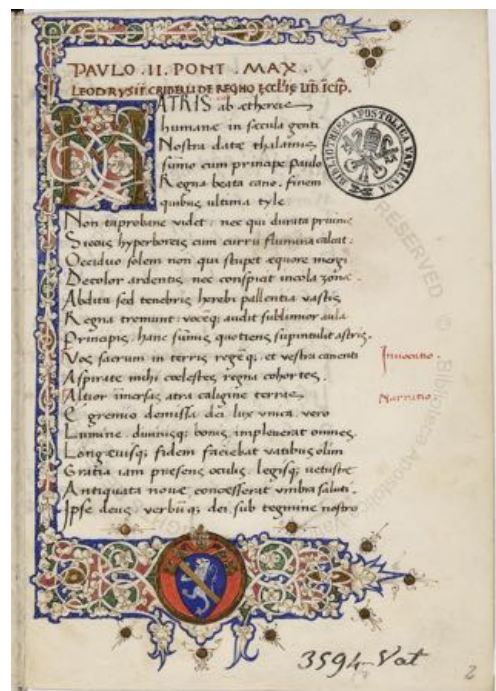 PAVLO . II . PONT . MAX .
LEODRYSII CRIBELLI DE REGNO Eccl'ie Lib' Icip.
MATRIS ab ethereis
humane in secula genti
Nostra date thalamis
sūmo cum principe Paulo
Regna beata cano. finem
quibus ultima tyle.
Non taprobane videt. nec qui durata pruinis
hyperboreis cum curru flumina calcat.
Occiduo solem non qui stupet equore mergi
Decolor ardentis nec conspicit incola zone.
Abdita sed tenebris herebi pallentia vastis
Regna tremunt: vocēq; audit sublimior aula
Principis, hanc sūmis quotiens supintulit astris.
Vos sacrum in terris regēq, et vestra canenti
Aspirate mihi coelestes regna cohortes.
Invocatio.
Altior īmersas atra caligine terras
Narratio.
E gremio demissa dei lux vnica vero
Lumine, diuinisq; bonis impleuerat omnes.
Longeuisq; fidem faciebat vatibus olim
Gratia iam presens oculis, legisq; vetuste
Antiquata noue concesserat vmbra saluti.
Ipse deus verbūq; dei sub tegmine nostro
BIBLIOTHECA APOSTOLICA VATICANA
3594-Vat
2
RESERVED © Biblioteca Apostolica